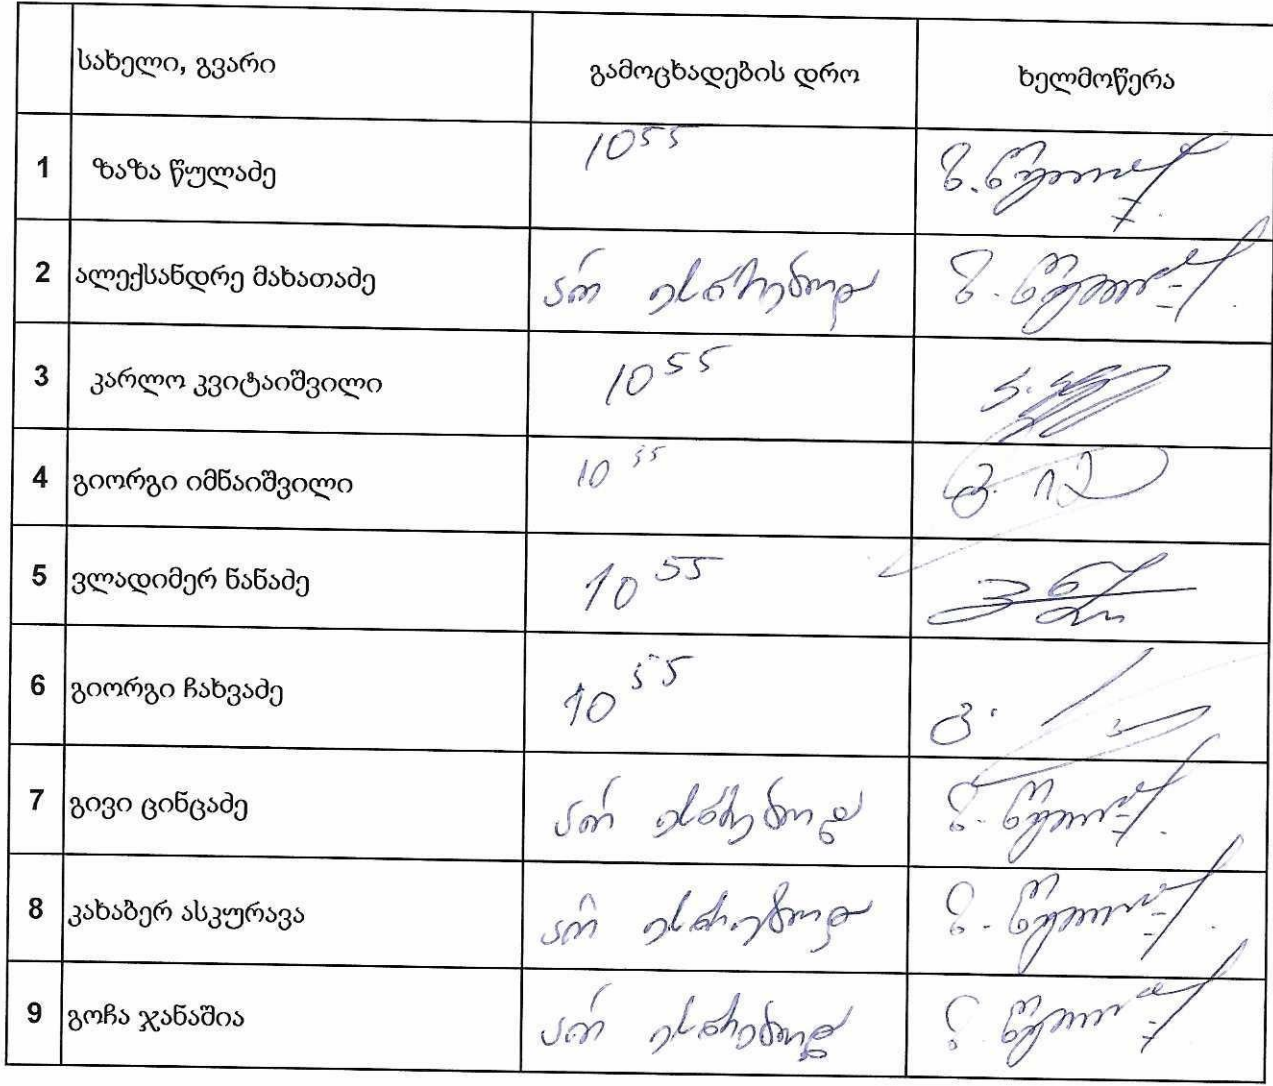 სახელი, გვარი გამოცხადების დრო ხელმოწერა
1 ზაზა წულაძე 10 55 ზ. წულაძე
2 ალექსანდრე მახათაძე არ ესწრებოდა ზ. წულაძე
3 კარლო კვიტაიშვილი 10 55
4 გიორგი იმნაიშვილი 10 55
5 ვლადიმერ ნანაძე 10 55
6 გიორგი ჩახვაძე 10 55
7 გივი ცინცაძე არ ესწრებოდა ზ. წულაძე
8 კახაბერ ასკურავა არ ესწრებოდა ზ. წულაძე
9 გოჩა ჯანაშია არ ესწრებოდა ზ. წულაძე